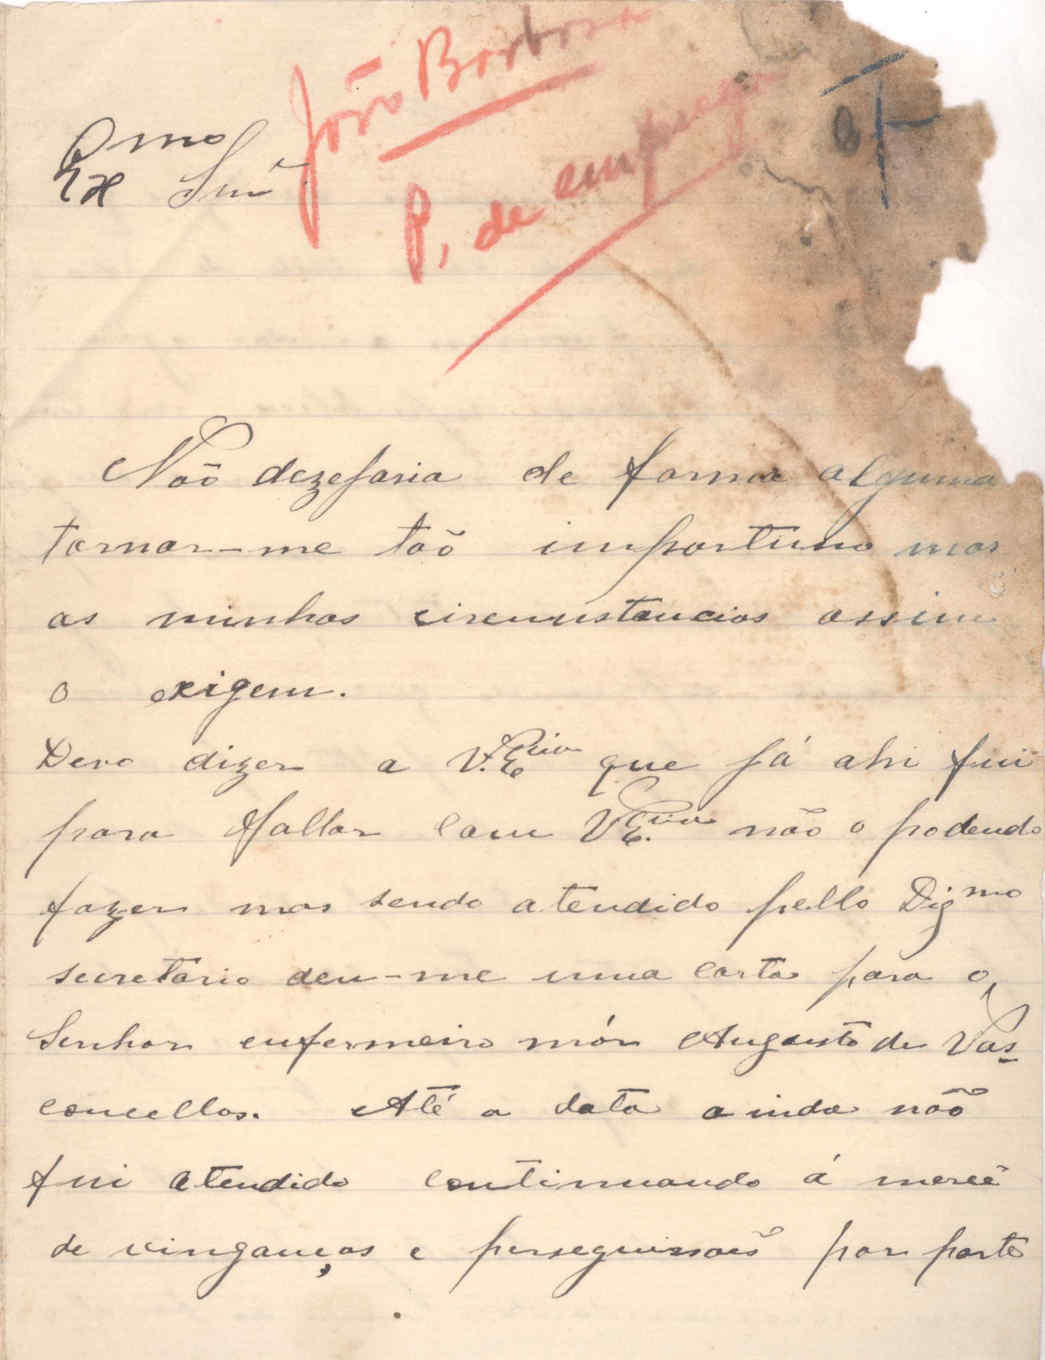 João Barbosa
P. de emprego
Exmo Snr
Não dezejaria de forma alguma
tornar-me taõ importuno mas
as minhas circunstancias assim
o exigem.
Devo dizer a V. Excia que já ahi fui
para fallar com V. Excia não o podendo
fazer mas sendo atendido pello Digmo
secretario deu-me uma carta para o
Senhor enfermeiro mór Augusto de Vas-
concellos. Até a data ainda naõ
fui atendido continuando á mercê
de vinganças e perseguissoẽs por parte